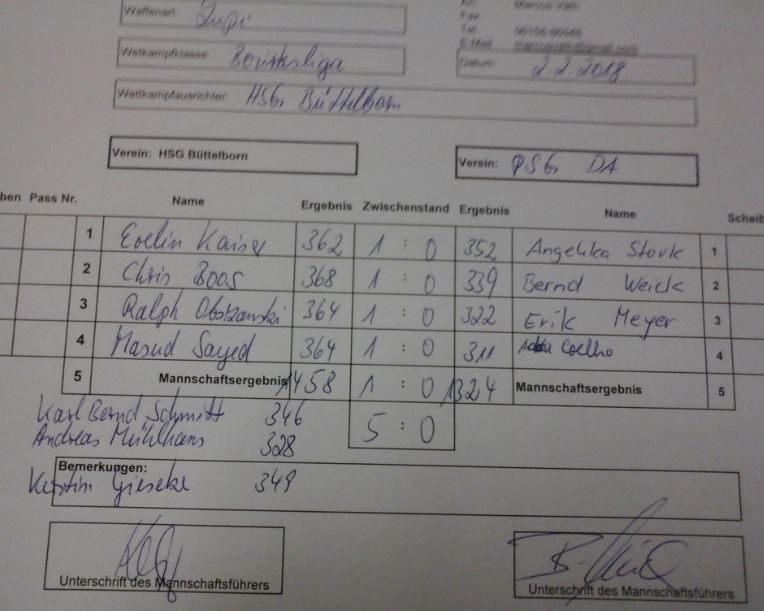 Waffenart: Lupi
Fax
Tel.
E-Mail
Wettkampfklasse Bezirksliga
Datum: 2.2.2018
Wettkampfausrichter HSG Büttelborn
Verein: HSG Büttelborn
Verein: PSG DA
ben Pass Nr. Name Ergebnis Zwischenstand Ergebnis Name Scheib
1 Evelin Kaiser 362 1 : 0 352 Angelika Stork 1
2 Chris Boos 368 1 : 0 339 Bernd Weick 2
3 Ralph 364 1 : 0 322 Erik Meyer 3
4 Masud Sayed 364 1 : 0 311 Coelho 4
5 Mannschaftsergebnis 1458 1 : 0 1324 Mannschaftsergebnis 5
Karl Bernd Schmitt 346 5 : 0
Andreas Mühlhans 328
Bemerkungen:
Kerstin Gieseke 349
Unterschrift des Mannschaftsführers
Unterschrift des Mannschaftsführers